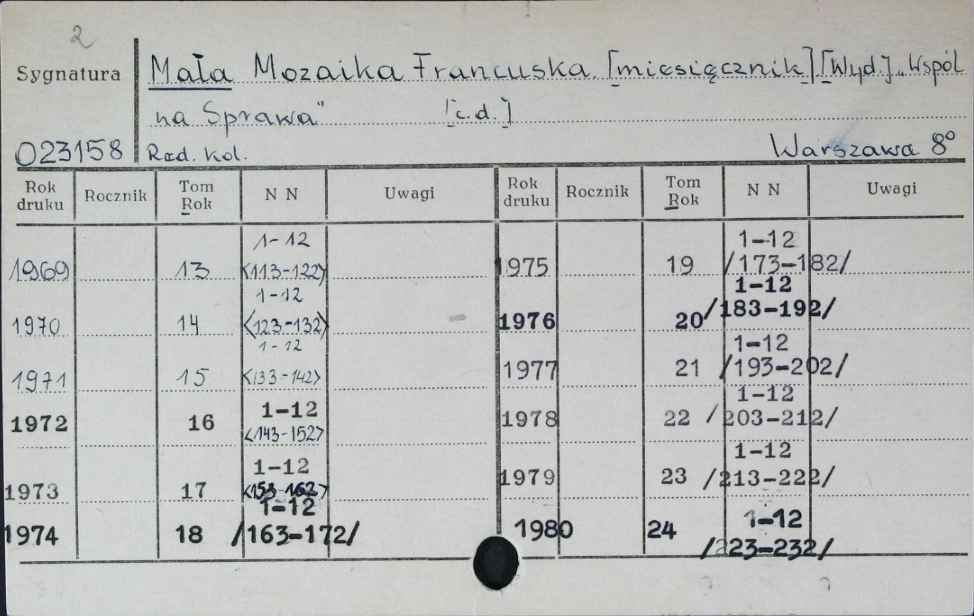 2
Sygnatura
Mała Mozaika Francuska. [miesięcznik] [Wyd.] „Wspól
na Sprawa" [c.d.]
023158 Red. Kol. Warszawa 8°
Rok druku Rocznik Tom Rok N N Uwagi Rok druku Rocznik Tom Rok N N Uwagi
1969 13 1-12 <113-122> 1975 19 1-12 /173-182/
1970 14 1-12 <123-132> 1976 20 1-12 /183-192/
1971 15 1-12 <133-142> 1977 21 1-12 /193-202/
1972 16 1-12 <143-152> 1978 22 1-12 /203-212/
1973 17 1-12 <153-162> 1979 23 1-12 /213-222/
1974 18 1-12 /163-172/ 1980 24 1-12 /223-232/